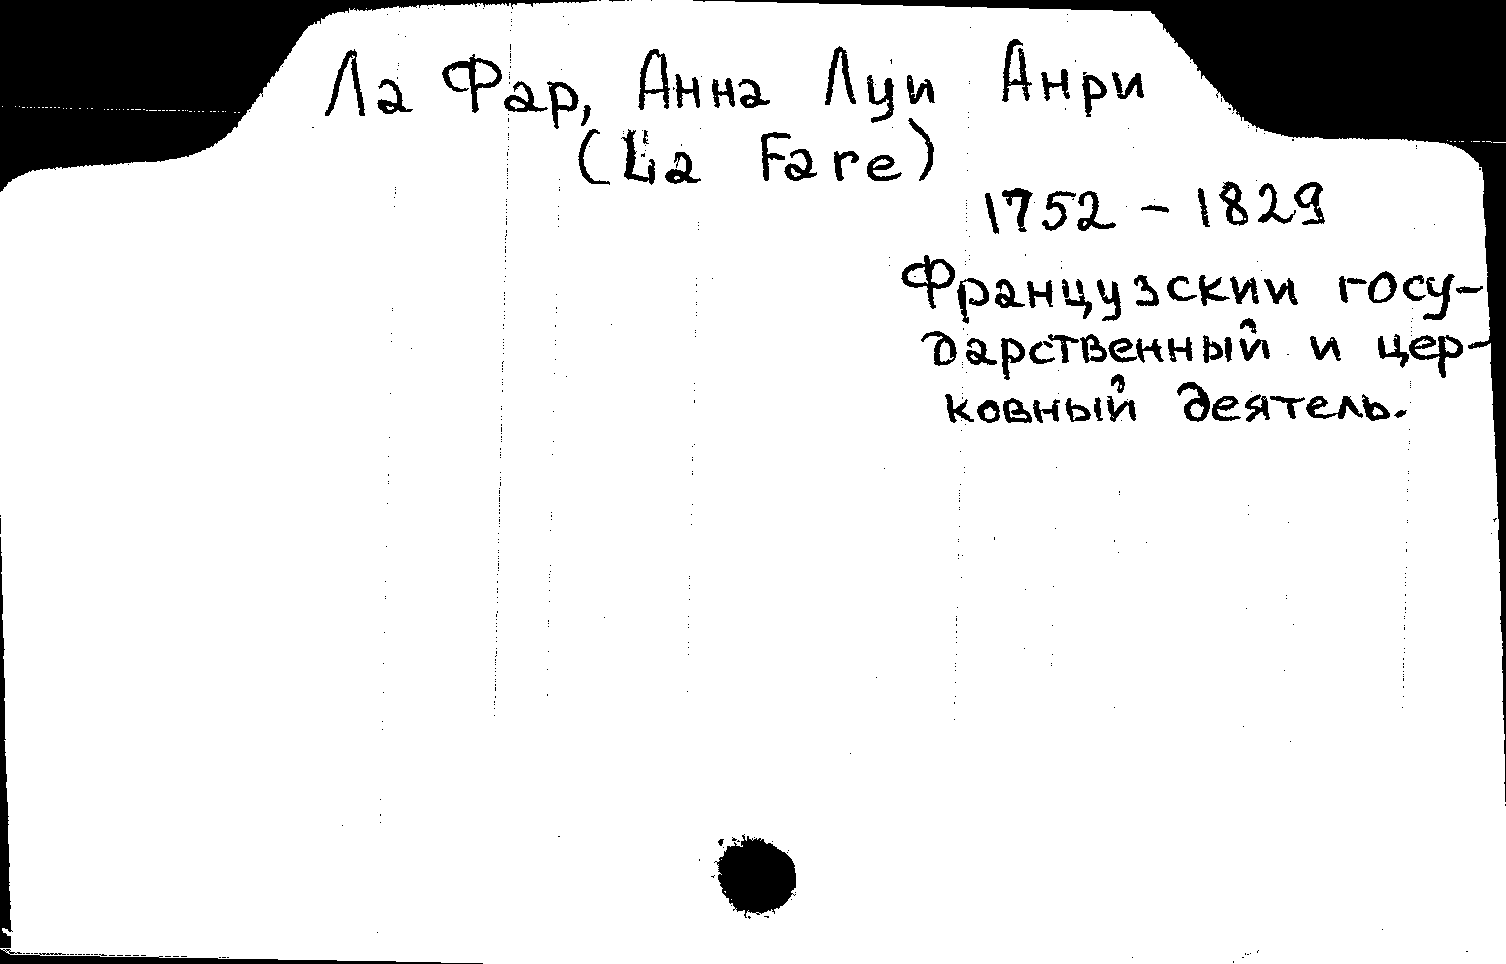 Ла Фар, Анна Луи Анри
(La Fare)
1752 - 1829
Французскии госу-
дарственный и цер-
ковный деятель.